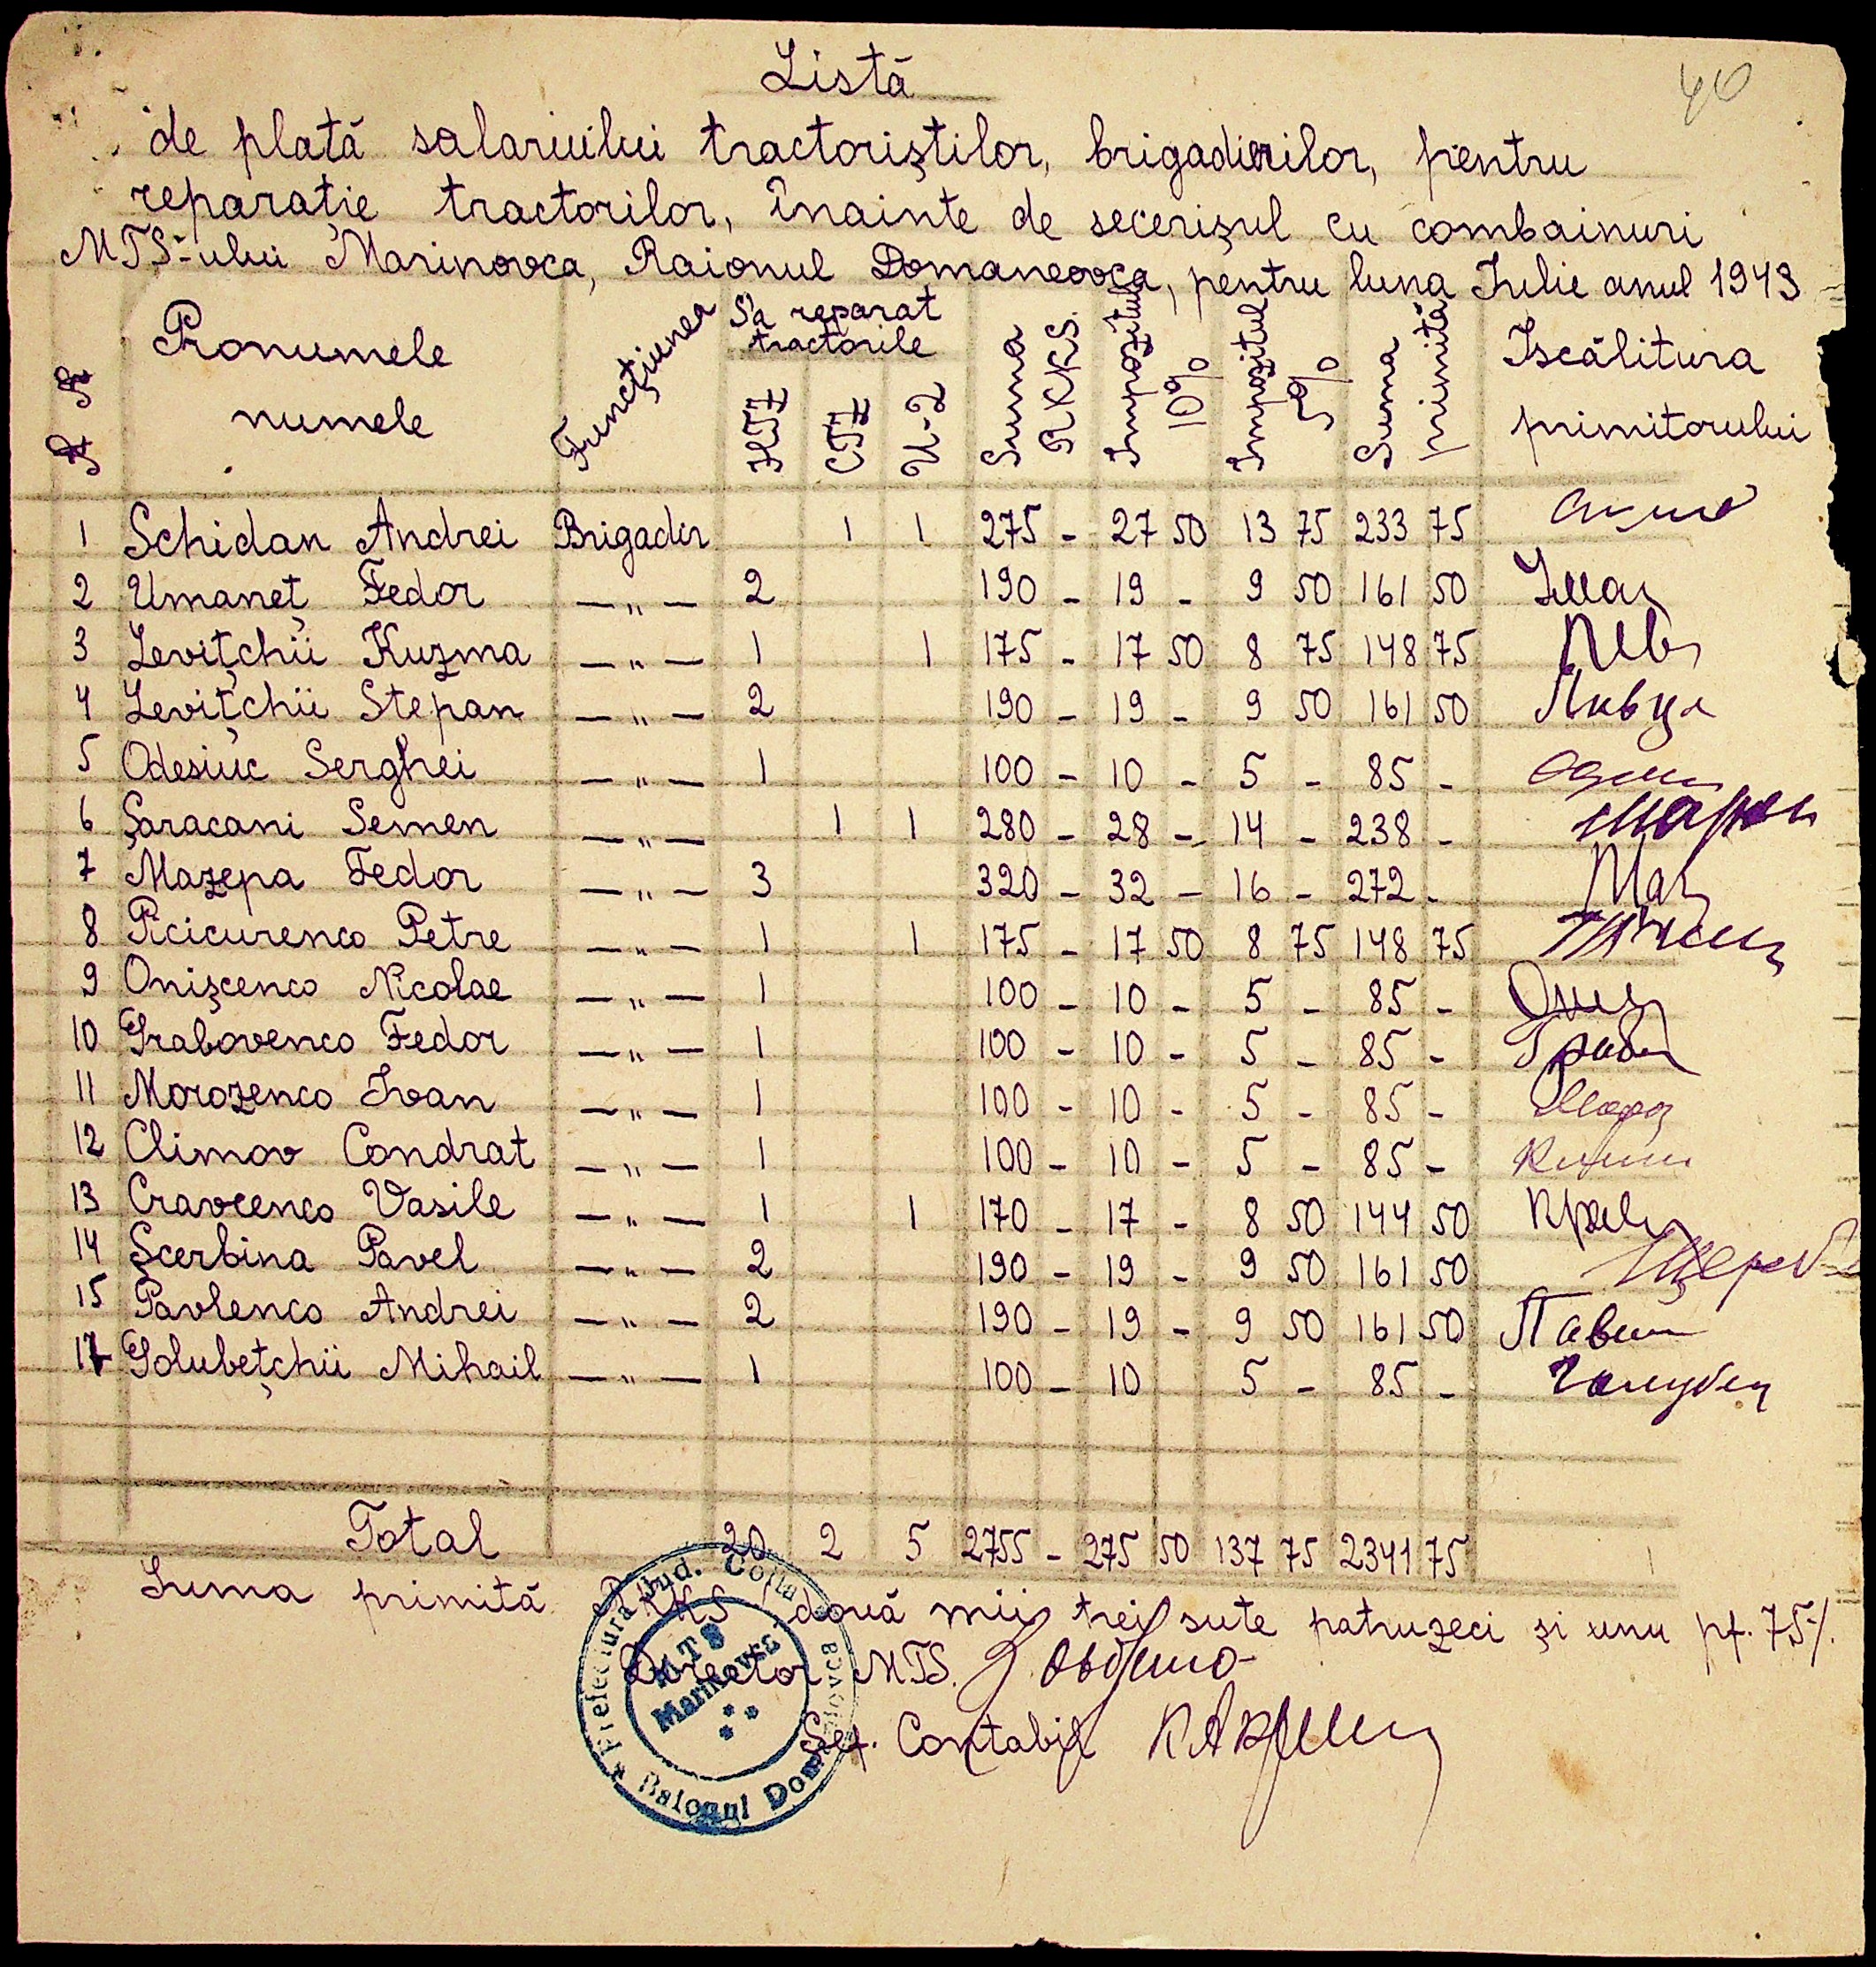 40
Listă
de plată salariului tractoriștilor, brigadierilor, pentru
reparație tractorilor, înainte de secerișul cu combainuri
MTS-ului Marinovca, Raionul Domaneovca, pentru luna Iulie anul 1943
№ № Pronumele numele Funcțiunea S'a reparat tractorile ХТЗ СТЗ У-2 Suma RKKS. Impozitul 10% Impozitul 5% Suma primită Iscălitura primitorului
1 Schidan Andrei Brigadir 1 1 275 - 27 50 13 75 233 75
2 Umaneț Fedor — „ — 2 190 - 19 - 9 50 161 50 Уман
3 Levițchii Kuzma — „ — 1 1 175 - 17 50 8 75 148 75 Лев
4 Levițchii Stepan — „ — 2 190 - 19 - 9 50 161 50
5 Odesiuc Serghei — „ — 1 100 - 10 - 5 - 85 -
6 Șaracani Semen — „ — 1 1 280 - 28 - 14 - 238 -
7 Mazepa Fedor — „ — 3 320 - 32 - 16 - 272 - Маз
8 Picicurenco Petre — „ — 1 1 175 - 17 50 8 75 148 75
9 Onișcenco Nicolae — „ — 1 100 - 10 - 5 - 85 -
10 Grabovenco Fedor — „ — 1 100 - 10 - 5 - 85 - Граб
11 Morozenco Ivan — „ — 1 100 - 10 - 5 - 85 - Мороз
12 Climov Condrat — „ — 1 100 - 10 - 5 - 85 - Клим
13 Cravcenco Vasile — „ — 1 1 170 - 17 - 8 50 144 50 Крав
14 Șcerbina Pavel — „ — 2 190 - 19 - 9 50 161 50 Щерб
15 Pavlenco Andrei — „ — 2 190 - 19 - 9 50 161 50 Павл
17 Golubețchii Mihail — „ — 1 100 - 10 5 - 85 - Голубец
Total 20 2 5 2755 - 275 50 137 75 2341 75
Suma primită RKKS două mii trei sute patruzeci și unu pf. 75%.
Director MTS.
Șef. Contabil
Prefectura Jud. Golta
Raionul Domaneovca
MTS
Marinovca